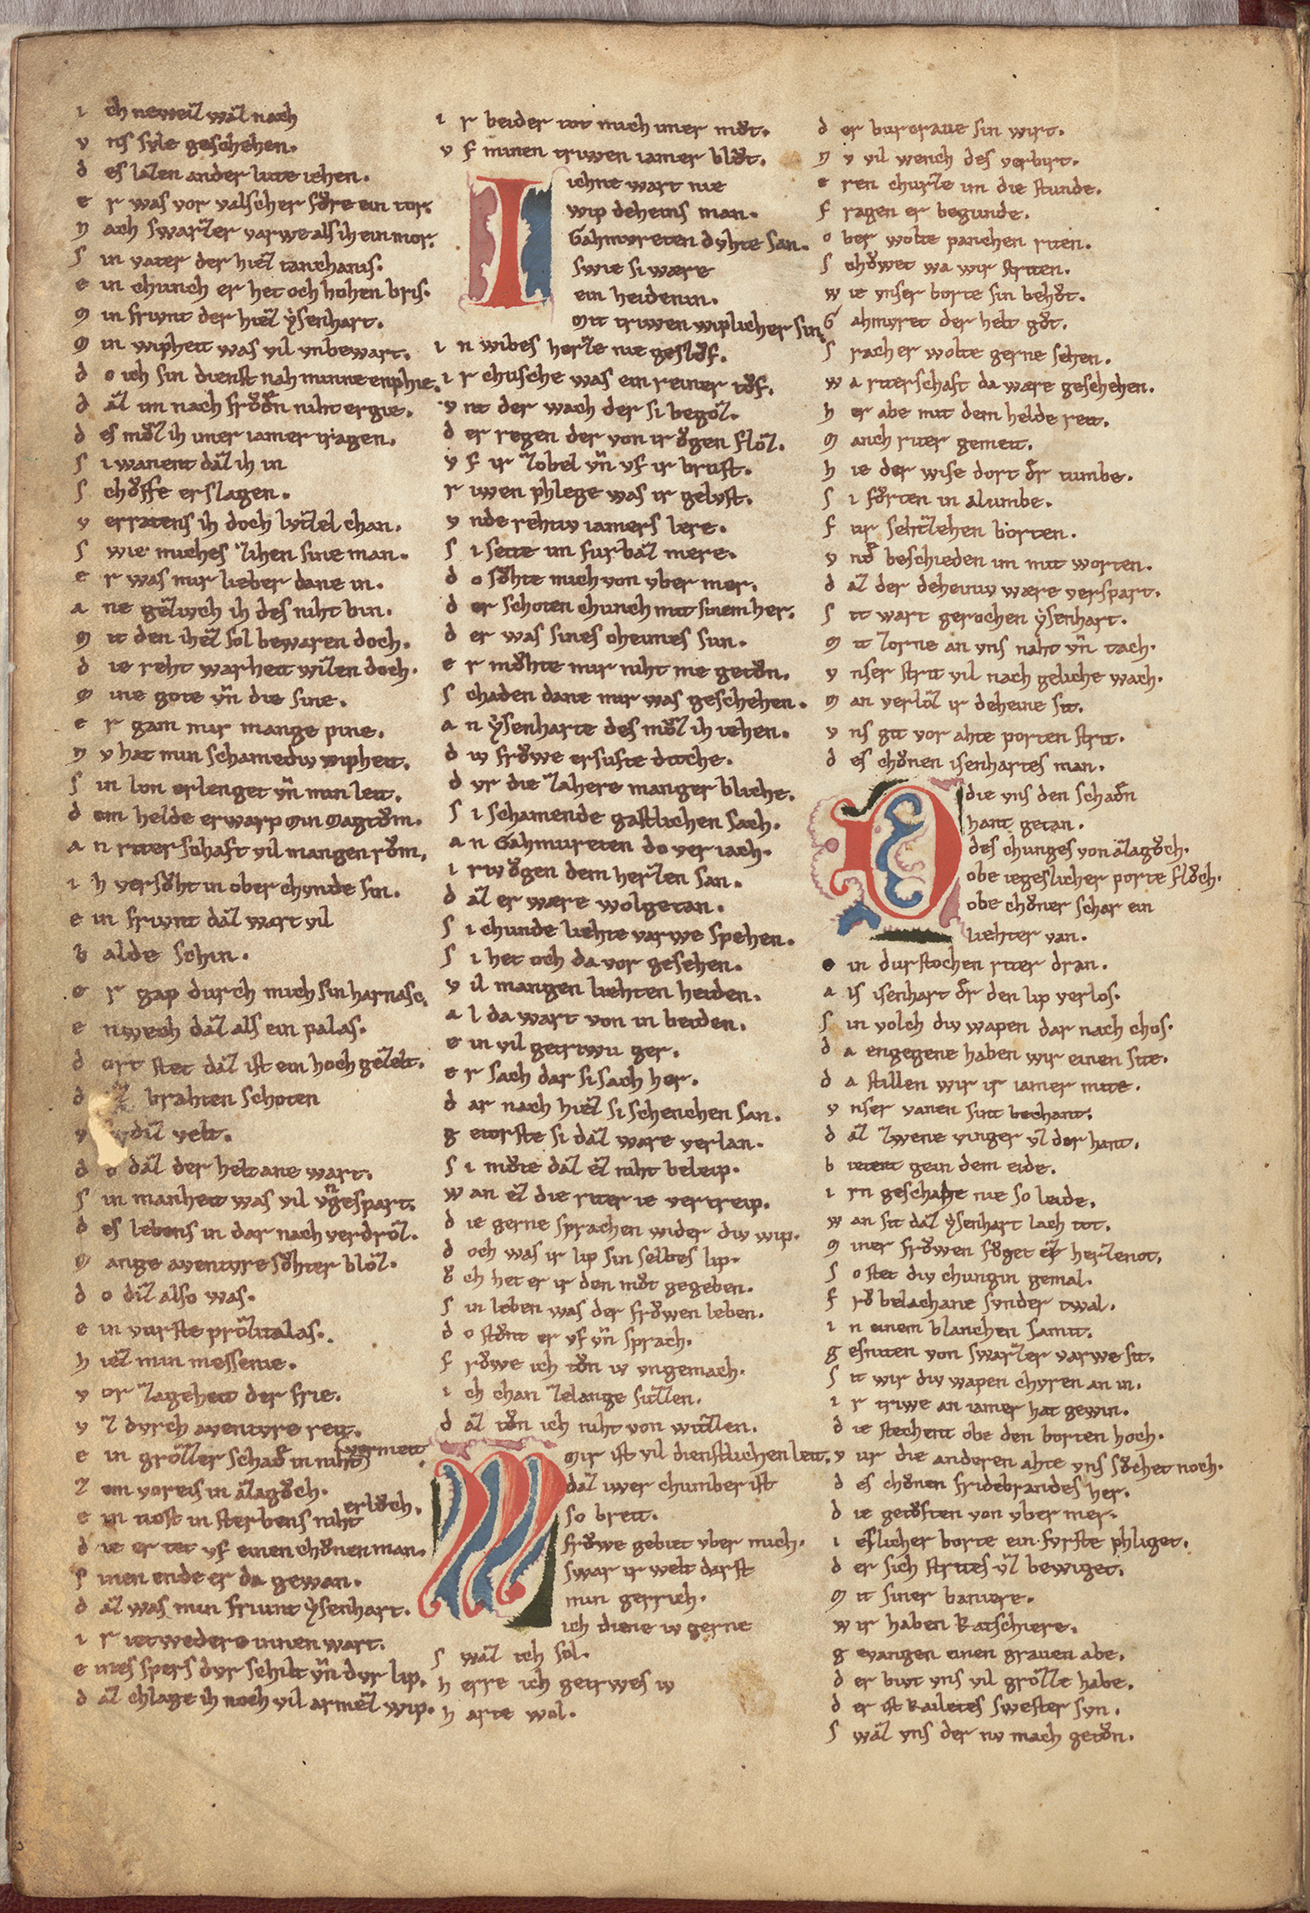 ich neweiz wâz nach
vns svle geschehen.
des lazen ander lvte iehen.
er was vor valscher fŏre ein tor.
nach swarzer varwe als ih ein mor.
sin vater der hiez tanchanis.
ein chunch er het och hohen bris.
Min friwnt der hiez ẏsenhart.
Min wipheit was vil vnbewart.
do ich sin dienst nah minne enphie.
dâz im nach frŏdn̄ niht ergie.
des mŏz ih imer iamer tragen.
si wanent dâz ih in
schŏffe erslagen.
verratens ih doch lvzzel chan.
swie michs zihen sine man.
er was mir lieber dane in.
ane gezivch ih des niht bin.
Mit den ihêz sol bewaren doch.
die reht warheit wizen doch.
Mine gote vn̄ die sine.
er gam mir mange pine.
Nv hat min schamediv wipheit.
sin lon erlenget vn̄ min leit.
dem helde erwarp Min Magtŏm.
an riterschaft vil mangen rŏm.
ih versŏht in ober chvnde sin.
ein friwnt dâz wart vil
balde schin.
er gap durch mich sin harnasc.
enwech dâz als ein palas.
dort stet dâz ist ein hoch gezelt.
brahten schoten
dâz der helt ane wart.
sin manheit was vil vngespart.
des lebens in dar nach verdrôz.
Mange aventvre sŏhter blôz.
do diz also was.
ein vurste prŏtizalas.
hiez min messenie.
vor zageheit der frie.
vz dvrch aventvre reit.
ein grŏzzer schad in niht vermeit
Zem voreis in âzagŏch.
ein tiost in sterbens niht erlŏch.
die er tet vf einen chŏnen man.
sinen ende er da gewan.
dâz was min friunt ẏsenhart.
ir ietweders innen wart.
eines spers dvr schilt vn̄ dvr lip.
dâz chlage ih noch vil armêz wip.
ir beider tot mich imer mŏt.
vf minen triwen iamer blŏt.
Ichne wart nie
wip deheins man.
Gahmvreten dvhte san.
swie si wære
ein heidenin.
Mit triwen wiplicher sin
in wibes herze nie geslŏf.
ir chusche was ein reiner tŏf.
vnt der wach der si begôz.
der regen der von ir ŏgen flôz.
vf ir zobel vn̄ vf ir brust.
riwen phlege was ir gelvst.
vnde rehtiv iamers lere.
si seite im furbâz mere.
do sŏhte mich von vber mer.
der schoten chunch mit sinem her.
der was sines oheimes sun.
er mŏhte mir niht me getŏn.
schaden dane mir was geschehen.
an ẏsenharte des mŏz ih iehen.
div frŏwe ersufte diche.
dvr die zahere manger bliche.
si schamende gastlichen sach.
an Gahmureten do veriach.
ir wŏgen dem herzen san.
dâz er wære wolgetan.
si chunde liehte varwe spehen.
si het och da vor gesehen.
vil mangen liehten heiden.
al da wart von in beiden.
ein vil getriwu ger.
er sach dar si sach her.
dar nach hiez si schenchen san.
getorste si dâz ware verlan.
si mŏte dâz êz niht beleip.
wan êz die riter ie vertreip.
die gerne sprachen wider div wip.
doch was ir lip sin selbes lip.
ŏch het er ir den mŏt gegeben.
sin leben was der frŏwen leben.
do stŏnt er vf vn̄ sprach.
frŏwe ich tŏn iv vngemach.
ich chan zelange sizzen.
dâz tŏn ich niht von wizzen.
Mir ist vil dienstlichen leit.
dâz iwer chumber ist
so breit.
frŏwe gebiet vber mich.
swar ir welt darst
min gerrich.
ich diene iv gerne
swâz ich sol.
herre ich getrwes iv
harte wol.
der burcraue sin wirt.
nv vil wench des verbirt.
eren churze im die stunde.
fragen er begunde.
ober wolte panchen riten.
schŏwet wa wir striten.
wie vnser borte sin behŏt.
Gahmvret der helt gŏt.
sprach er wolte gerne sehen.
wa riterschaft da wære geschehen.
her abe mit dem helde reit.
manch riter gemeit.
hie der wise dort der tumbe.
si fŏrten in alumbe.
fur sehtzehen borten.
vnd beschieden im mit worten.
dâz der deheiniv wære verspart.
sit wart gerochen ẏsenhart.
Mit zorne an vns naht vn̄ tach.
vnser strit vil nach geliche wach.
Man verlôz ir deheine sit.
vns git vor ahte porten strit.
des chŏnen isenhartes man.
die vns den schadn̄
hant getan.
des chunges von âzagŏch.
obe iegeslicher porte flŏch.
obe chŏner schar ein
liehter van.
ein durstochen riter dran.
als isenhart der den lip verlos.
sin volch div wapen dar nach chos.
da engegene haben wir einen site.
da stillen wir ir iamer mite.
vnser vanen sint bechant.
dâz zwene vinger vz der hant.
bietent gein dem eide.
irn geschahe nie so leide.
wan sit dâz ẏsenhart lach tot.
miner frŏwen fŏget êz herzenot.
so stet div chungin gemal.
frŏ belachane svnder twal.
in einem blanchen samit.
gesniten von swarzer varwe sit.
sit wir div wapen chvren an in.
ir triwe an iamer hat gewin.
die stechent obe den borten hoch.
vur die anderen ahte vns sŏchet noch.
des chŏnen fridebrandes her.
die getŏften von vber mer.
ieslicher borte ein fvrste phliget.
der sich strites vz bewiget.
Mit siner baniere.
wir haben Katschiere.
gevangen einen grauen abe.
der biut vns vil grŏzze habe.
der ist Kailetes swester svn.
swâz vns der nv mach getŏn.